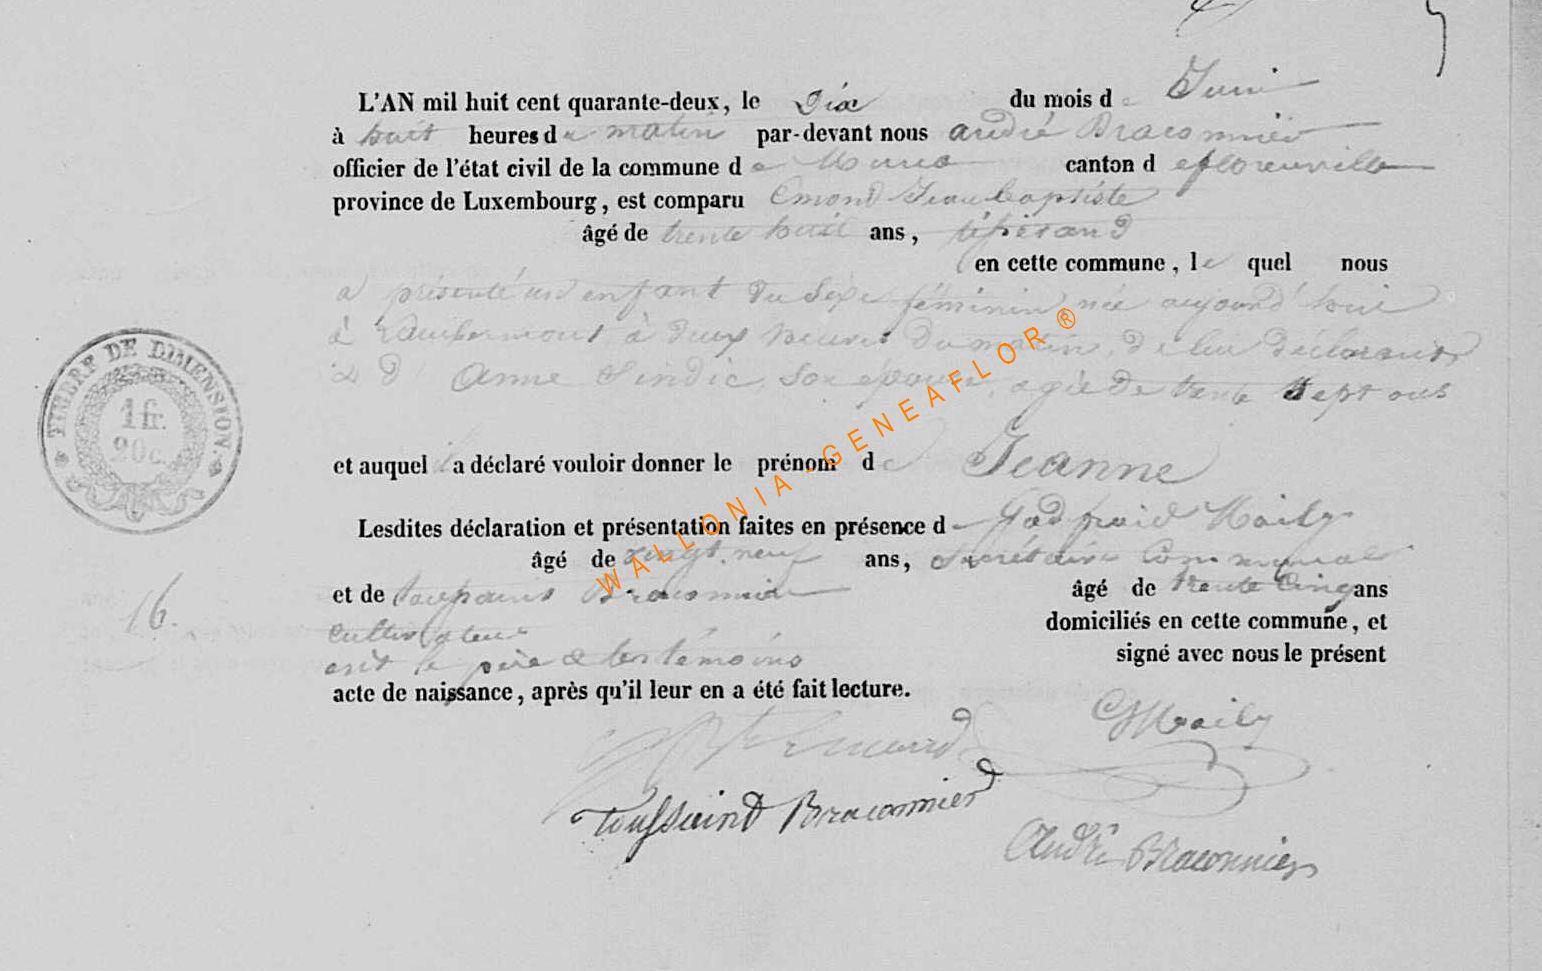 L'AN mil huit cent quarante-deux, le Dix du mois de Juin
à huit heures du matin par-devant nous andré Braconnier
officier de l'état civil de la commune de Muno canton de florenville
province de Luxembourg, est comparu Emond Jean baptiste
âgé de trente huit ans, tisserand
en cette commune, le quel nous
a présenté un enfant du Sexe féminin née aujourd'hui
à Lambermont, à deux heures du matin, de lui déclarant
& d'Anne Sindic, Son épouse, agée de trente Sept ans
et auquel il a déclaré vouloir donner le prénom de Jeanne
Lesdites déclaration et présentation faites en présence de Godfroid Maily
âgé de vingt neuf ans, Secrétaire Communal
et de Braconnier âgé de trente Cinq ans
Cultivateur domiciliés en cette commune, et
ont le père & les témoins signé avec nous le présent
acte de naissance, après qu'il leur en a été fait lecture.
16.
TIMBRE DE DIMENSION.
1 fr.
20 c.
Emond
GMaily
Toussaint Braconnier
André Braconnier
WALLONIA-GENEAFLOR ®